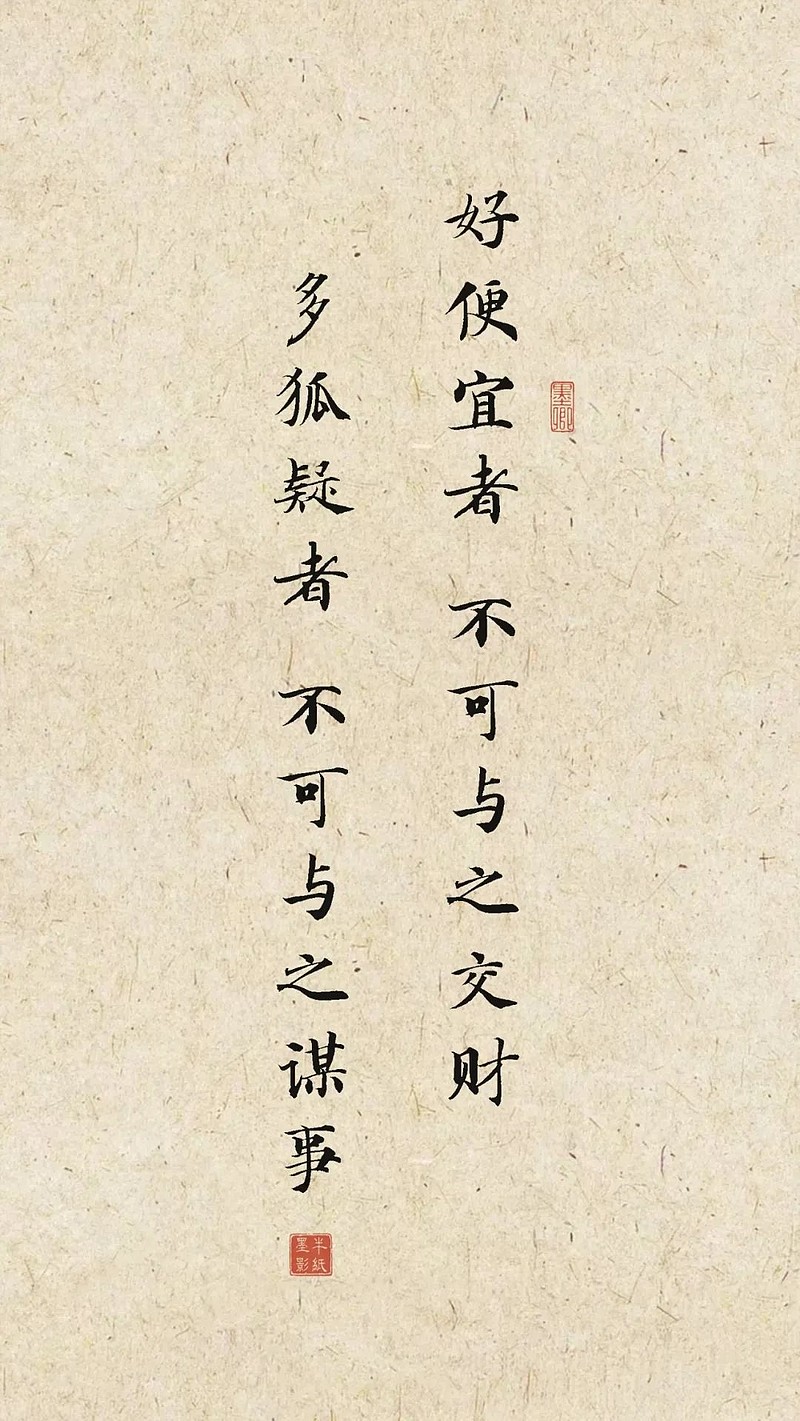 好便宜者 不可与之交财
多狐疑者 不可与之谋事
墨卿
半纸墨影